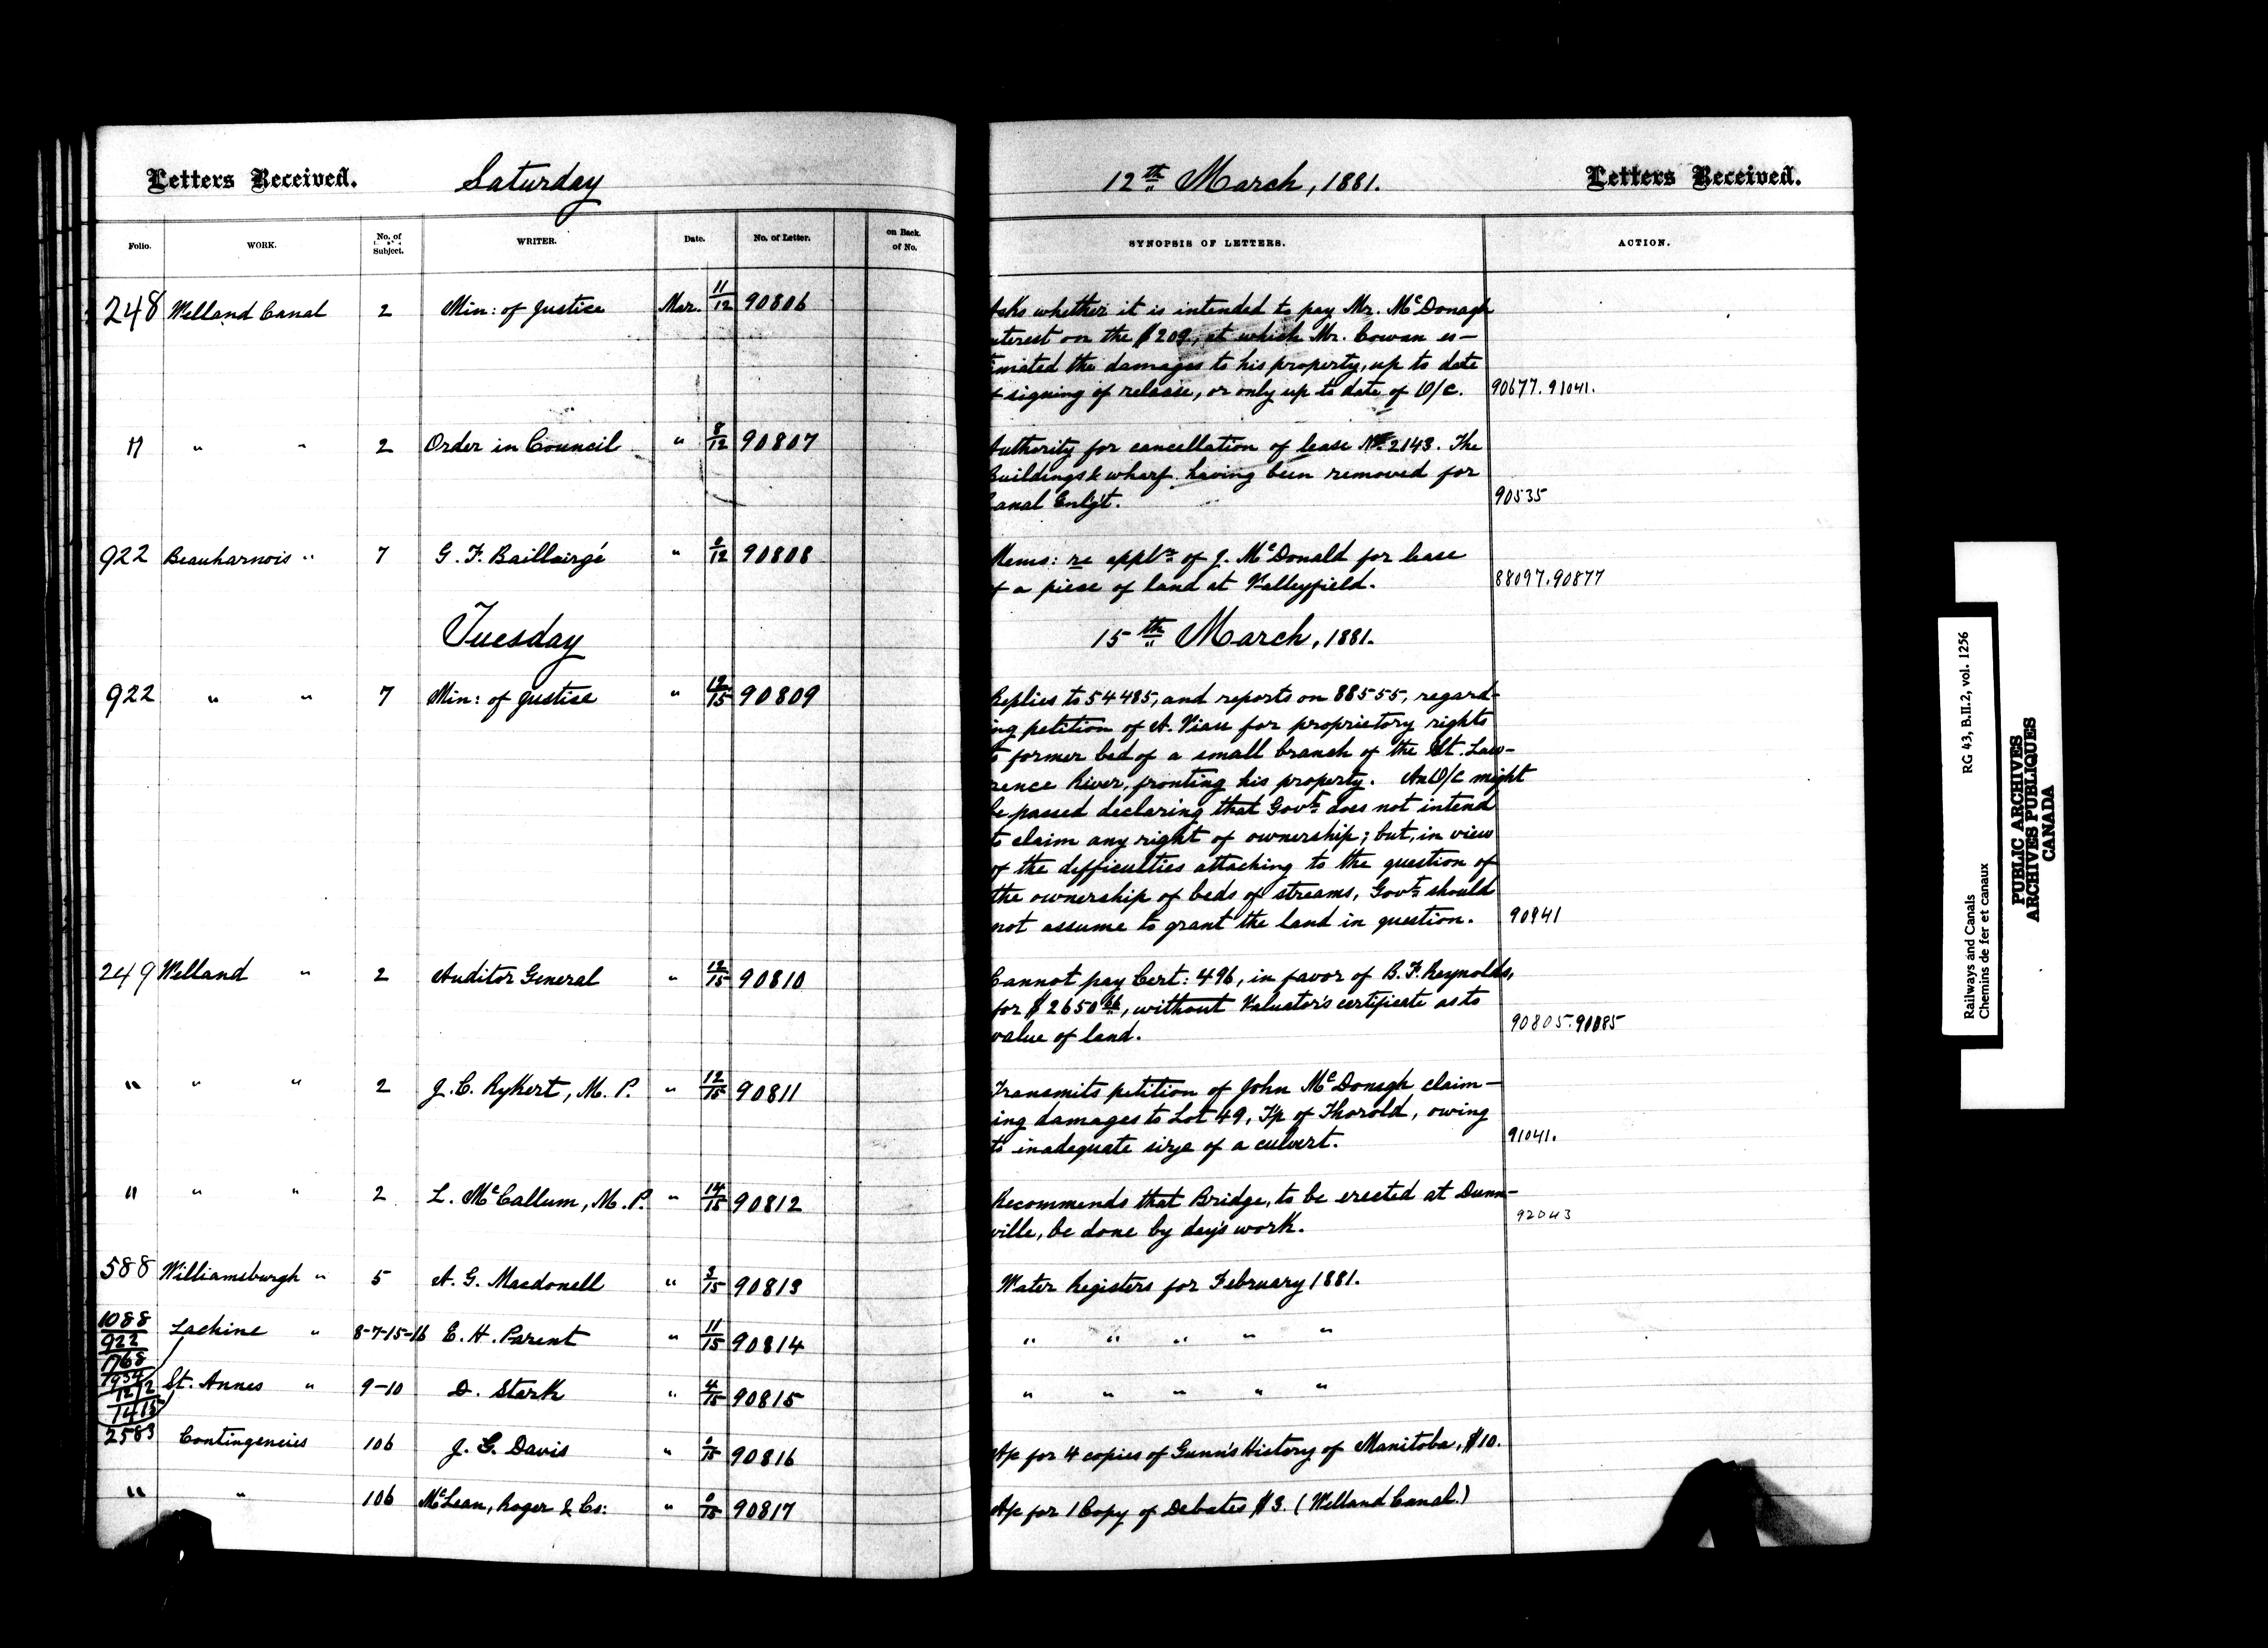 Letters Received. Saturday 12th March, 1881. Letters Received.
Folio. WORK. No. of Subject. WRITER. Date. No. of Letter. on Back. of No. SYNOPSIS OF LETTERS. ACTION.
248 Welland Canal 2 Min: of Justice Mar. 11/12 90806 Asks whether it is intended to pay Mr. McDonagh
nterest on the $209, at which Mr. Cowan es-
timated the damages to his property, up to date
signing of release, or only up to date of O/C. 90677. 91041.
" " " 2 Order in Council " 8/12 90807 Authority for cancellation of lease No. 2143. The
Buildings & wharf having been removed for
Canal Enlg't. 90535
922 Beauharnois " 7 G. F. Baillairgé " 0/12 90808 Mems: re appln of J. McDonald for lease
f a piece of land at Valleyfield. 88097. 90877
Tuesday 15th March, 1881.
922 " " 7 Min: of Justice " 12/15 90809 Replies to 54485, and reports on 88555, regard-
ing petition of A. Viau for proprietory rights
to former bed of a small branch of the St. Law-
rence River, fronting his property. An O/C might
be passed declaring that Govt. does not intend
to claim any right of ownership; but, in view
of the difficulties attaching to the question of
the ownership of beds of streams, Govt. should
not assume to grant the land in question. 90941
249 Welland " 2 Auditor General " 12/15 90810 Cannot pay Cert: 496, in favor of B. F. Reynolds,
for $2650, without Valuator's certificate as to
value of land. 90805.
" " " 2 J. C. Rykert, M. P. " 12/15 90811 Transmits petition of John McDonagh claim-
ing damages to Lot 49, Tp of Thorold, owing
to inadequate size of a culvert. 91041.
" " " 2 L. McCallum, M. P. " 14/15 90812 Recommends that Bridge, to be erected at Dunn-
ville, be done by day's work. 92043
588 Williamsburgh " 5 A. G. Macdonell " 3/15 90813 Water Registers for February 1881.
1088 922 1768 Lachine " 8-7-15-16 E. H. Parent " 11/15 90814 " " " " "
1212 1415 St. Annes " 9-10 D. Stark " 4/15 90815 " " " " "
2583 Contingencies 106 J. G. Davis " 0/15 90816 A/c for 4 copies of Gunn's History of Manitoba, $10.
" " 106 McLean, Roger & Co: " 0/15 90817 A/c for 1 Copy of Debates $3. (Welland Canal.)
Railways and Canals RG 43, B.II.2, vol. 1256
Chemins de fer et canaux
PUBLIC ARCHIVES
ARCHIVES PUBLIQUES
CANADA